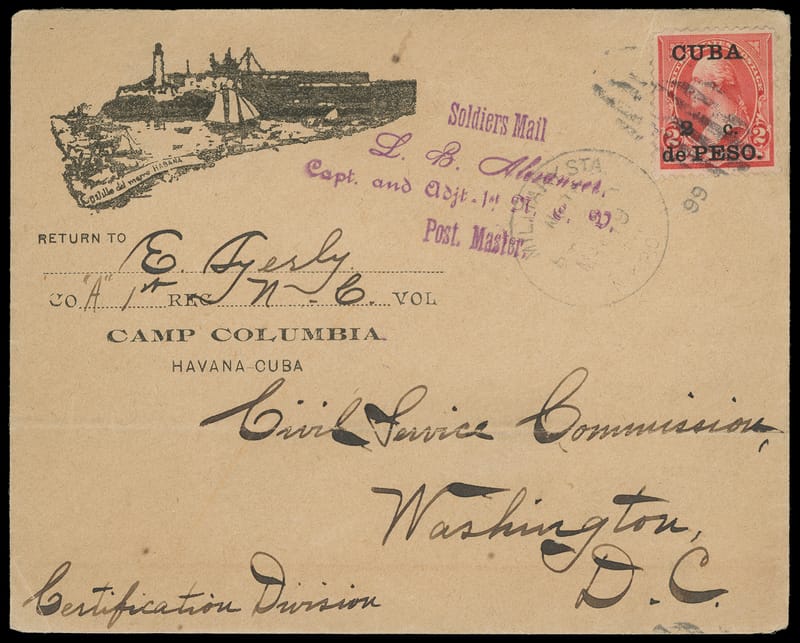 Castillo del morro HABANA
RETURN TO
E. Tyerly
CO. "A" 1st REG N. C. VOL
CAMP COLUMBIA.
HAVANA-CUBA
Soldiers Mail
L. E.
Capt. and Adjt. 1st
Post. Master.
MILITARY STA
CUBA
2 c.
de PESO.
2 2
99
Civil Service Commission,
Washington,
D. C.
Certification Division